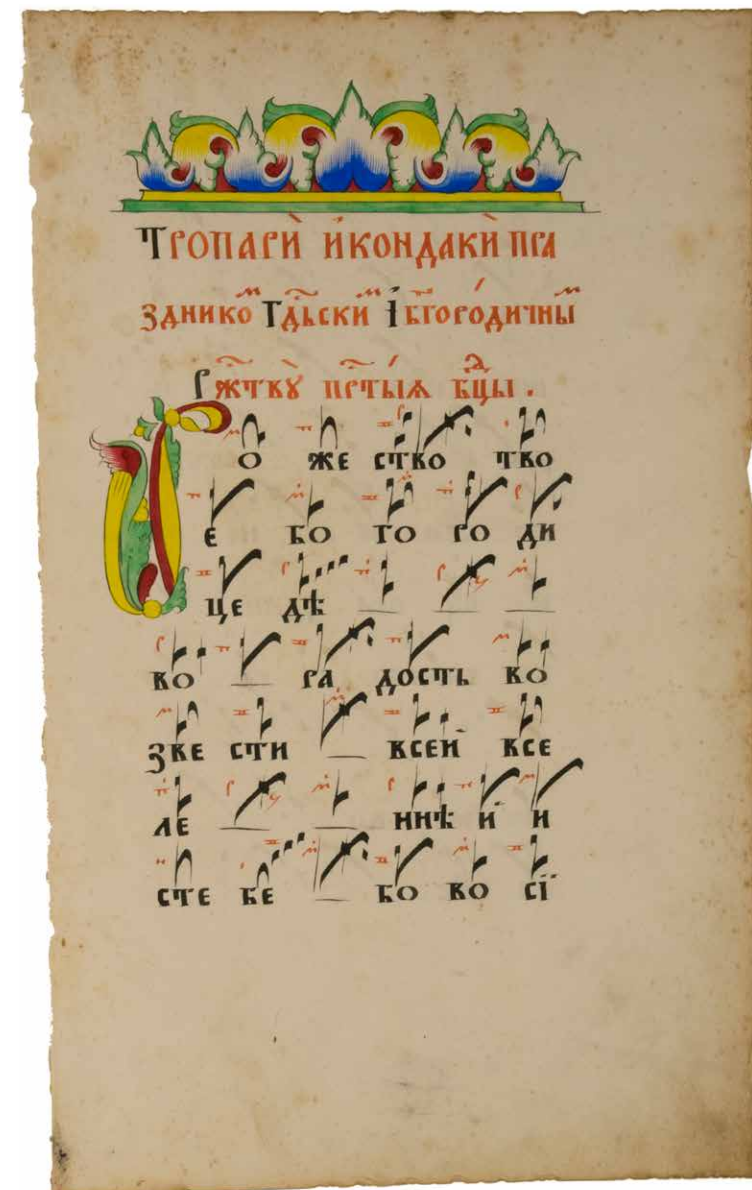 Тропарѝ и҆кондакѝ пра
здникоⷨ Гд҃ьскиⷨ І҆бг҃оро́дичныⷨ
Рж҃тву̀ пр҃ты́ѧ бцⷣы .
Ро же ство тво
е бо го ро ди
це дѣ
во ра дость во
зве сти всей все
ле ннѣ и и
сте бе бо во сї